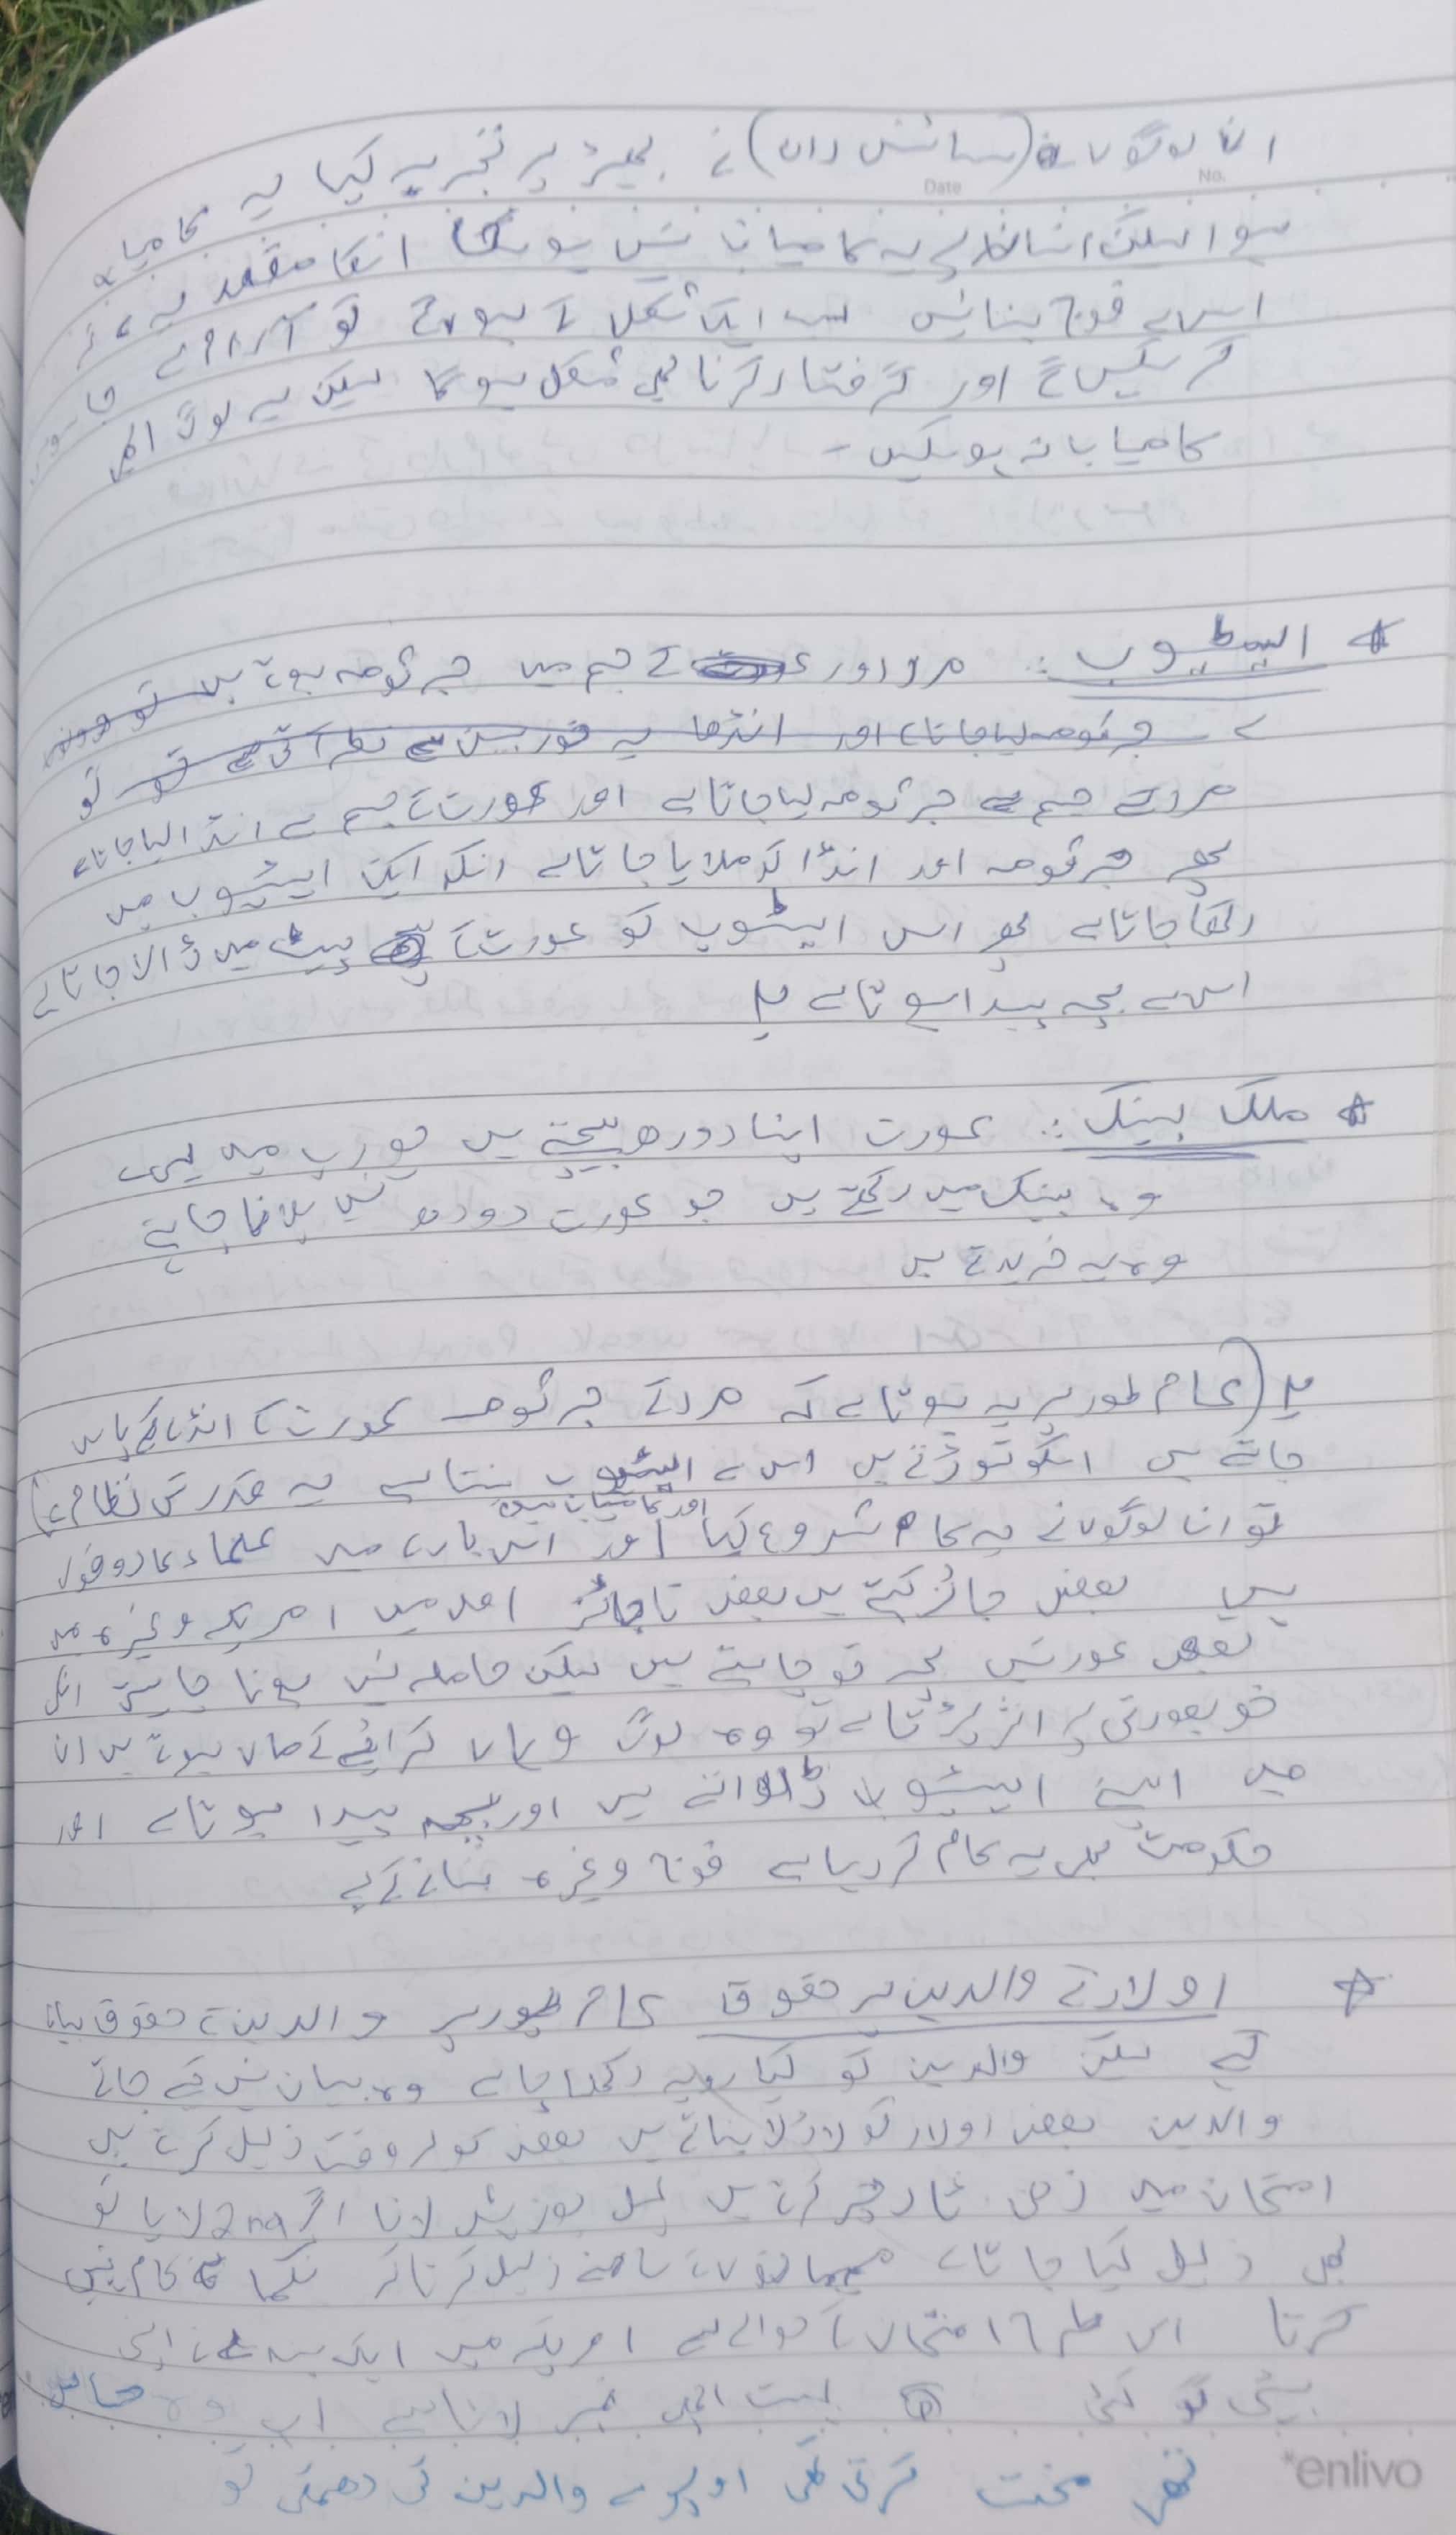 ان لوگوں (سائنس دان) نے بھیڑ پر تجربہ کیا یہ کامیاب
No.
Date
ہوا لیکن انسان پر یہ کامیاب نہیں ہوسکا انکا مقصد یہ ہے
اس سے فوج بنائیں سب ایک شکل کے ہوں گے تو آرام سے
کرسکیں گے اور گرفتار کرنا بھی مشکل ہوگا لیکن یہ لوگ ابھی
کامیاب نہ ہوسکیں -
* الیٹیوب : مرد اور کے جسم میں جرثومہ ہوتے
جرثومہ لیا جاتا ہے اور انڈھا یہ خوردبین سے نظر آتی ہے تو تو
مرد کے جسم سے جرثومہ لیا جاتا ہے اور عورت کے جسم سے انڈا لیا جاتا ہے
پھر جرثومہ اور انڈا کو ملایا جاتا ہے انکو ایک الیٹیوب میں
رکھا جاتا ہے پھر اس الیٹیوب کو عورت کے پیٹ میں ڈالا جاتا ہے
اس سے بچہ پیدا ہوتا ہے
* ملک بینک : عورت اپنا دودھ بیچتے ہیں یورپ میں
وہ بینک میں رکھتے ہیں جو عورت دودھ نہیں پلانا چاہتے
وہ یہ خریدتے ہیں
(عام طور پر یہ ہوتا ہے کہ مرد کے جرثومہ عورت کا انڈا کے پاس
جاتے ہیں اسکو توڑتے ہیں اس سے بنتا ہے یہ قدرتی نظام ہے)
اور کامیاب ہیں
تو ان لوگوں نے یہ کام شروع کیا اور اس بارے میں علماء کا دو قول
ہیں بعض جائز کہتے ہیں بعض ناجائز اصل میں امریکہ وغیرہ میں
بعض عورتیں بچہ تو چاہتے ہیں لیکن حاملہ نہیں ہونا چاہتی انکی
خوبصورتی پر اثر پڑتا ہے تو وہ لوگ وہاں کرائے کے ماں ہوتے ہیں ان
میں اپنے الیٹیوب ڈلواتے ہیں اور بچہ پیدا ہوتا ہے اور
حکومت بھی یہ کام کر رہا ہے فوج وغیرہ بنانے کے لیے
* اولاد کے والدین پر حقوق عام طور پر والدین کے حقوق بیان
کیے لیکن والدین کو کیا رویہ رکھنا چاہے وہ بیان نہیں کیے جاتے
والدین بعض اولاد کو لاڈلا بناتے ہیں بعض کو ہر وقت ذلیل کرتے ہیں
امتحان میں ذہنی ٹارچر کرتے ہیں پہلی پوزیشن لانا اگر 2nd لایا تو
بھی ذلیل کیا جاتا ہے مہمانوں کے سامنے ذلیل کرنا کہ نکما ہے کام نہیں
کرتا اس طرح امتحان کے حوالے سے امریکہ میں ایک اپنی
بیٹی کو کہتی بہت اچھے نمبر لانا ہے اب وہ
تھی محنت کرتی تھی اوپر سے والدین کی دھمکی تو
enlivo